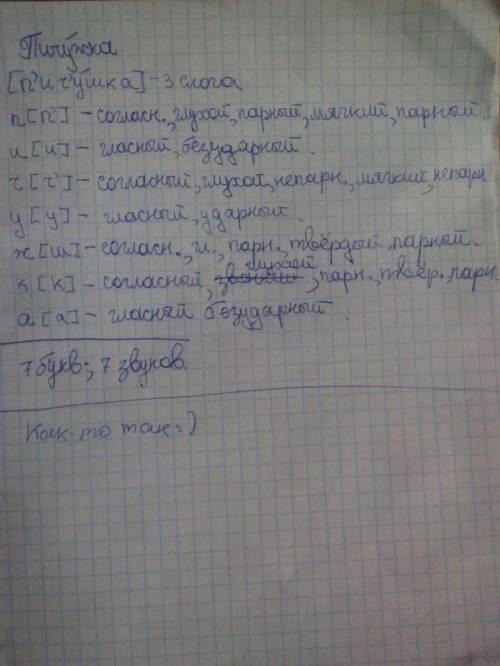 Пичужка
[п'ич'у́шка] - 3 слога
п [п'] - согласн., глухой, парный, мягкий, парный.
и [и] - гласный, безударный.
ч [ч'] - согласный, глухой, непарн., мягкий, непарн
у [у] - гласный, ударный.
ж [ш] - согласн., гл., парн., твёрдый, парный.
к [к] - согласный, глухой, парн., твёр., парн.
а [а] - гласный безударный.
7 букв; 7 звуков.
Как-то так =)